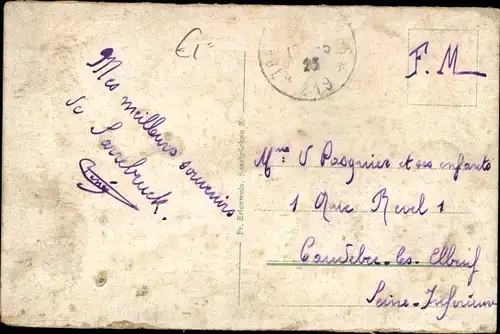 Mes meilleurs souvenirs
de Sarrebruck.
Fr. Erlenwein, Saarbrücken 3.
23
* 219 *
F. M
Mme V Pasquier et ses enfants
1 Rue Revel 1
Caudebec-les-Elbeuf
Seine-Inferieure